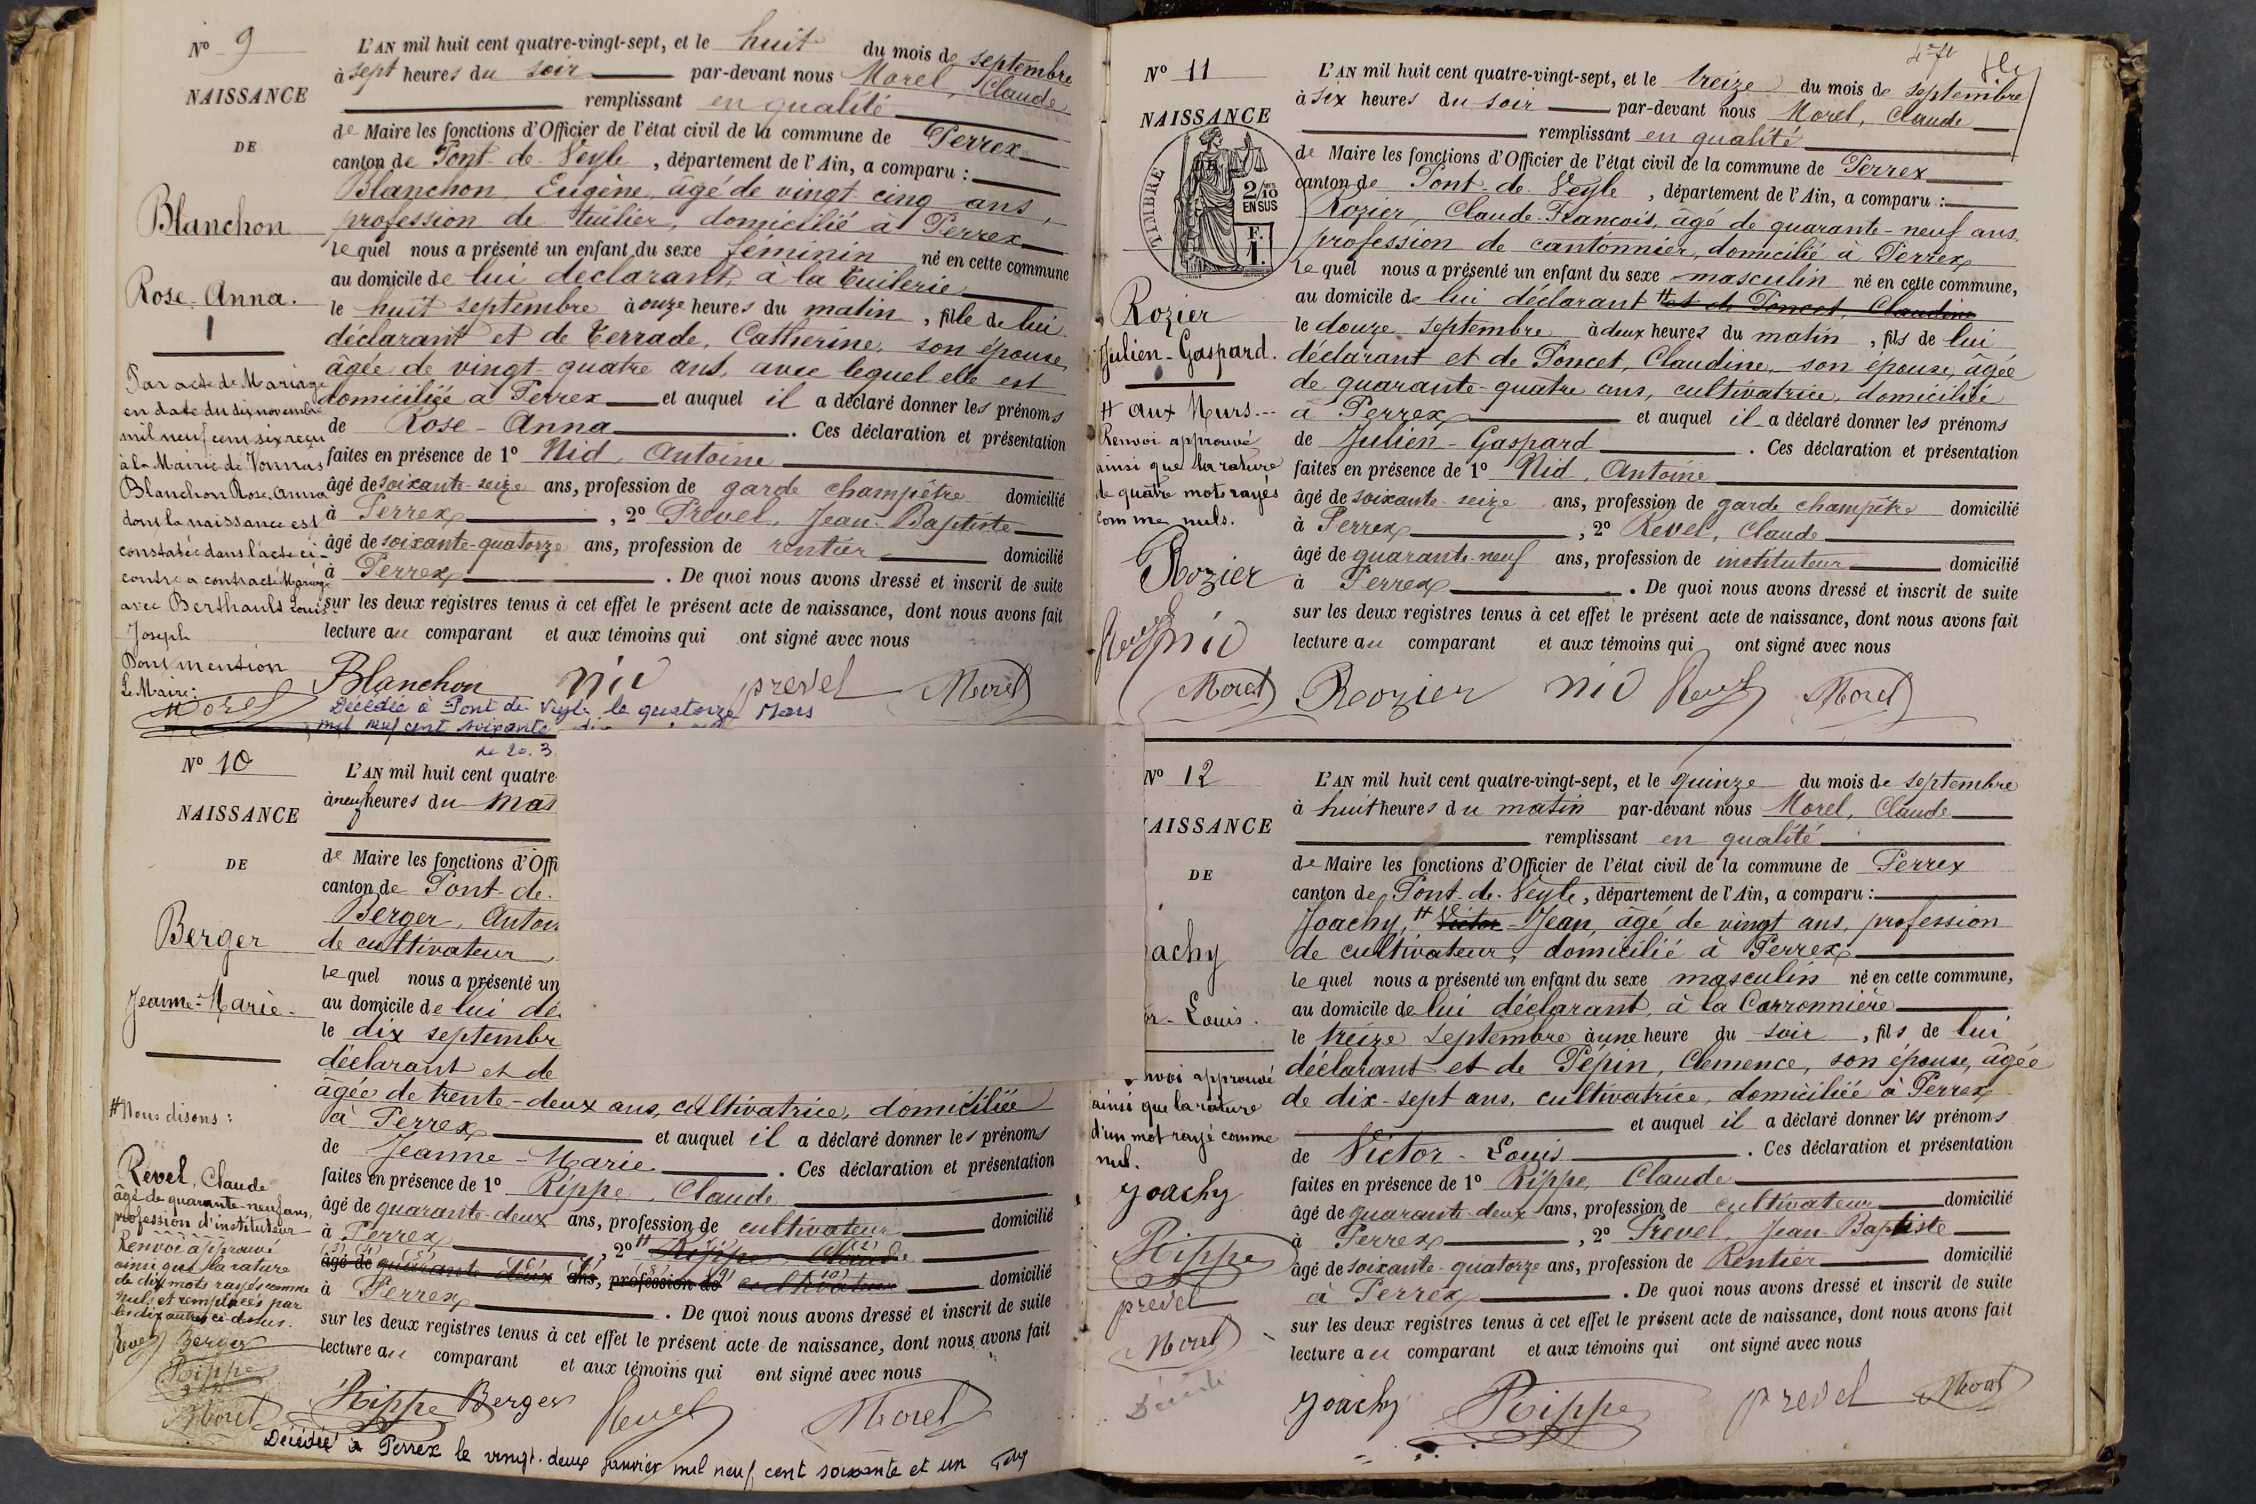 N° 9
NAISSANCE
DE
Blanchon
Rose-Anna.
Par acte de Mariage
en date du dix novembre
mil neuf cent six reçu
à la Mairie de Vonnas
Blanchon Rose Anna
dont la naissance est
constatée dans l'acte ci-
contre a contracté Mariage
avec Berthault Louis
Joseph
Dont mention
Le Maire:
Morel
L'AN mil huit cent quatre-vingt-sept, et le huit du mois de septembre
à sept heures du soir par-devant nous Morel, Claude
remplissant en qualité
de Maire les fonctions d'Officier de l'état civil de la commune de Perrex
canton de Pont-de-Veyle, département de l'Ain, a comparu :
Blanchon, Eugène, âgé de vingt-cinq ans,
profession de tuilier, domicilié à Perrex
lequel nous a présenté un enfant du sexe féminin né en cette commune
au domicile de lui déclarant, à la Tuilerie
le huit septembre à onze heures du matin, fille de lui
déclarant et de Terrade, Catherine, son épouse,
âgée de vingt-quatre ans, avec lequel elle est
domiciliée à Perrex et auquel il a déclaré donner les prénoms
de Rose-Anna. Ces déclaration et présentation
faites en présence de 1° Nid, Antoine
âgé de soixante-seize ans, profession de garde champêtre domicilié
à Perrex, 2° Prevel, Jean-Baptiste
âgé de soixante-quatorze ans, profession de rentier domicilié
à Perrex. De quoi nous avons dressé et inscrit de suite
sur les deux registres tenus à cet effet le présent acte de naissance, dont nous avons fait
lecture au comparant et aux témoins qui ont signé avec nous
Blanchon nid prevel Morel
Décédée à Pont-de-Veyle le quatorze Mars
mil neuf cent soixante
le 20.3
N° 10
NAISSANCE
DE
Berger
Jeanne-Marie
# Nous disons :
Revel, Claude
âgé de quarante-neuf ans,
profession d'instituteur
Renvoi approuvé
ainsi que la rature
de dix mots rayés comme
nuls et remplacés par
les dix autres ci-dessus.
Revel Berger
Rippe
Morel
L'AN mil huit cent quatre
à neuf heures du mat
de Maire les fonctions d'Offi
canton de Pont-de-
Berger, Antoi
de cultivateur
lequel nous a présenté un
au domicile de lui dé
le dix septembr
déclarant et de
âgée de trente-deux ans, cultivatrice, domiciliée
à Perrex et auquel il a déclaré donner les prénoms
de Jeanne-Marie. Ces déclaration et présentation
faites en présence de 1° Rippe, Claude
âgé de quarante-deux ans, profession de cultivateur domicilié
à Perrex, 2° # Rippe Claude
âgé de quarante deux ans, profession de cultivateur domicilié
à Perrex. De quoi nous avons dressé et inscrit de suite
sur les deux registres tenus à cet effet le présent acte de naissance, dont nous avons fait
lecture au comparant et aux témoins qui ont signé avec nous
Rippe Berger Revel Morel
Décédée à Perrex le vingt-deux janvier mil neuf cent soixante et un
N° 11
NAISSANCE
TIMBRE
2/10
EN SUS
F.
1.
Rozier
Julien-Gaspard.
# aux Murs.--
Renvoi approuvé
ainsi que la rature
de quatre mots rayés
comme nuls.
Rozier
Revel nid
Morel
L'AN mil huit cent quatre-vingt-sept, et le treize du mois de septembre
à six heures du soir par-devant nous Morel, Claude
remplissant en qualité
de Maire les fonctions d'Officier de l'état civil de la commune de Perrex
canton de Pont-de-Veyle, département de l'Ain, a comparu :
Rozier, Claude-François, âgé de quarante-neuf ans,
profession de cantonnier, domicilié à Perrex
lequel nous a présenté un enfant du sexe masculin né en cette commune,
au domicile de lui déclarant # et de Poncet, Claudine
le douze septembre à deux heures du matin, fils de lui
déclarant et de Poncet, Claudine, son épouse, âgée
de quarante-quatre ans, cultivatrice, domiciliée
à Perrex et auquel il a déclaré donner les prénoms
de Julien-Gaspard. Ces déclaration et présentation
faites en présence de 1° Nid, Antoine
âgé de soixante-seize ans, profession de garde champêtre domicilié
à Perrex, 2° Revel, Claude
âgé de quarante-neuf ans, profession de instituteur domicilié
à Perrex. De quoi nous avons dressé et inscrit de suite
sur les deux registres tenus à cet effet le présent acte de naissance, dont nous avons fait
lecture au comparant et aux témoins qui ont signé avec nous
Rozier nid Revel Morel
N° 12
AISSANCE
DE
achy
r-Louis.
nvoi approuvé
ainsi que la rature
d'un mot rayé comme
nul.
Joachy
Rippe
prevel
Morel
Décédé
L'AN mil huit cent quatre-vingt-sept, et le quinze du mois de septembre
à huit heures du matin par-devant nous Morel, Claude
remplissant en qualité
de Maire les fonctions d'Officier de l'état civil de la commune de Perrex
canton de Pont-de-Veyle, département de l'Ain, a comparu :
Joachy, # Victor-Jean, âgé de vingt ans, profession
de cultivateur, domicilié à Perrex
lequel nous a présenté un enfant du sexe masculin né en cette commune,
au domicile de lui déclarant, à la Carronnière
le treize septembre à une heure du soir, fils de lui
déclarant et de Pépin, Clemence, son épouse, âgée
de dix-sept ans, cultivatrice, domiciliée à Perrex
et auquel il a déclaré donner les prénoms
de Victor-Louis. Ces déclaration et présentation
faites en présence de 1° Rippe, Claude
âgé de quarante-deux ans, profession de cultivateur domicilié
à Perrex, 2° Prevel, Jean-Baptiste
âgé de soixante-quatorze ans, profession de Rentier domicilié
à Perrex. De quoi nous avons dressé et inscrit de suite
sur les deux registres tenus à cet effet le présent acte de naissance, dont nous avons fait
lecture au comparant et aux témoins qui ont signé avec nous
Joachy Rippe prevel Morel